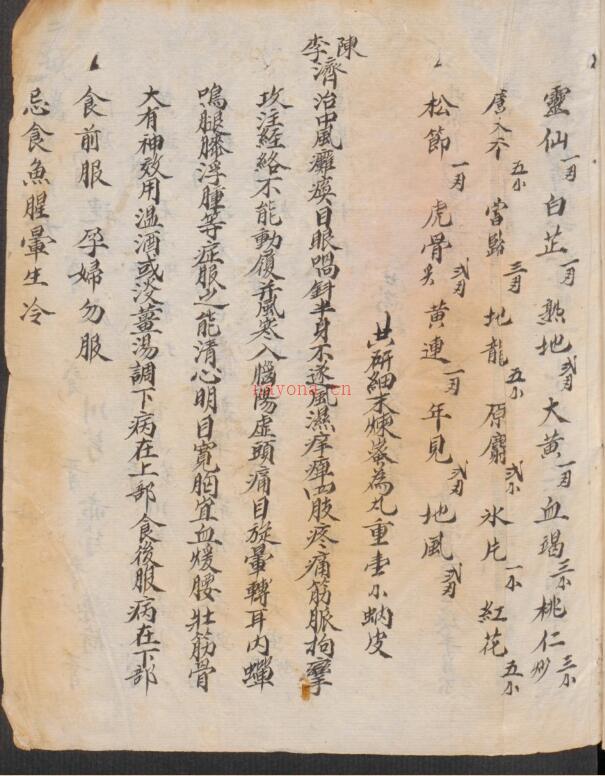 靈仙一両 白芷一両 熟地弍両 大黃一両 血竭三小 桃仁三小炒
五小 當歸三両 地龍五小 原麝弍小 氷片一小 紅花五小
松節一両 虎骨弍両 黃連一両 年見弍両 地風弍両
共研細末煉蜜為丸重壹小蚋皮
陳李濟治中風癱瘓口眼喎斜半身不遂風濕痹四肢疼痛筋脈拘攣
攻注経絡不能動履并風寒入腦陽虛頭痛目旋暈轉耳內蟬
鳴腿膝浮腫等症服之能清心明目寬胸宜血煖腰壮筋骨
大有神效用温酒或淡薑湯調下病在上部食後服病在下部
食前服 孕婦勿服
忌食魚腥葷生冷
nayona.cn